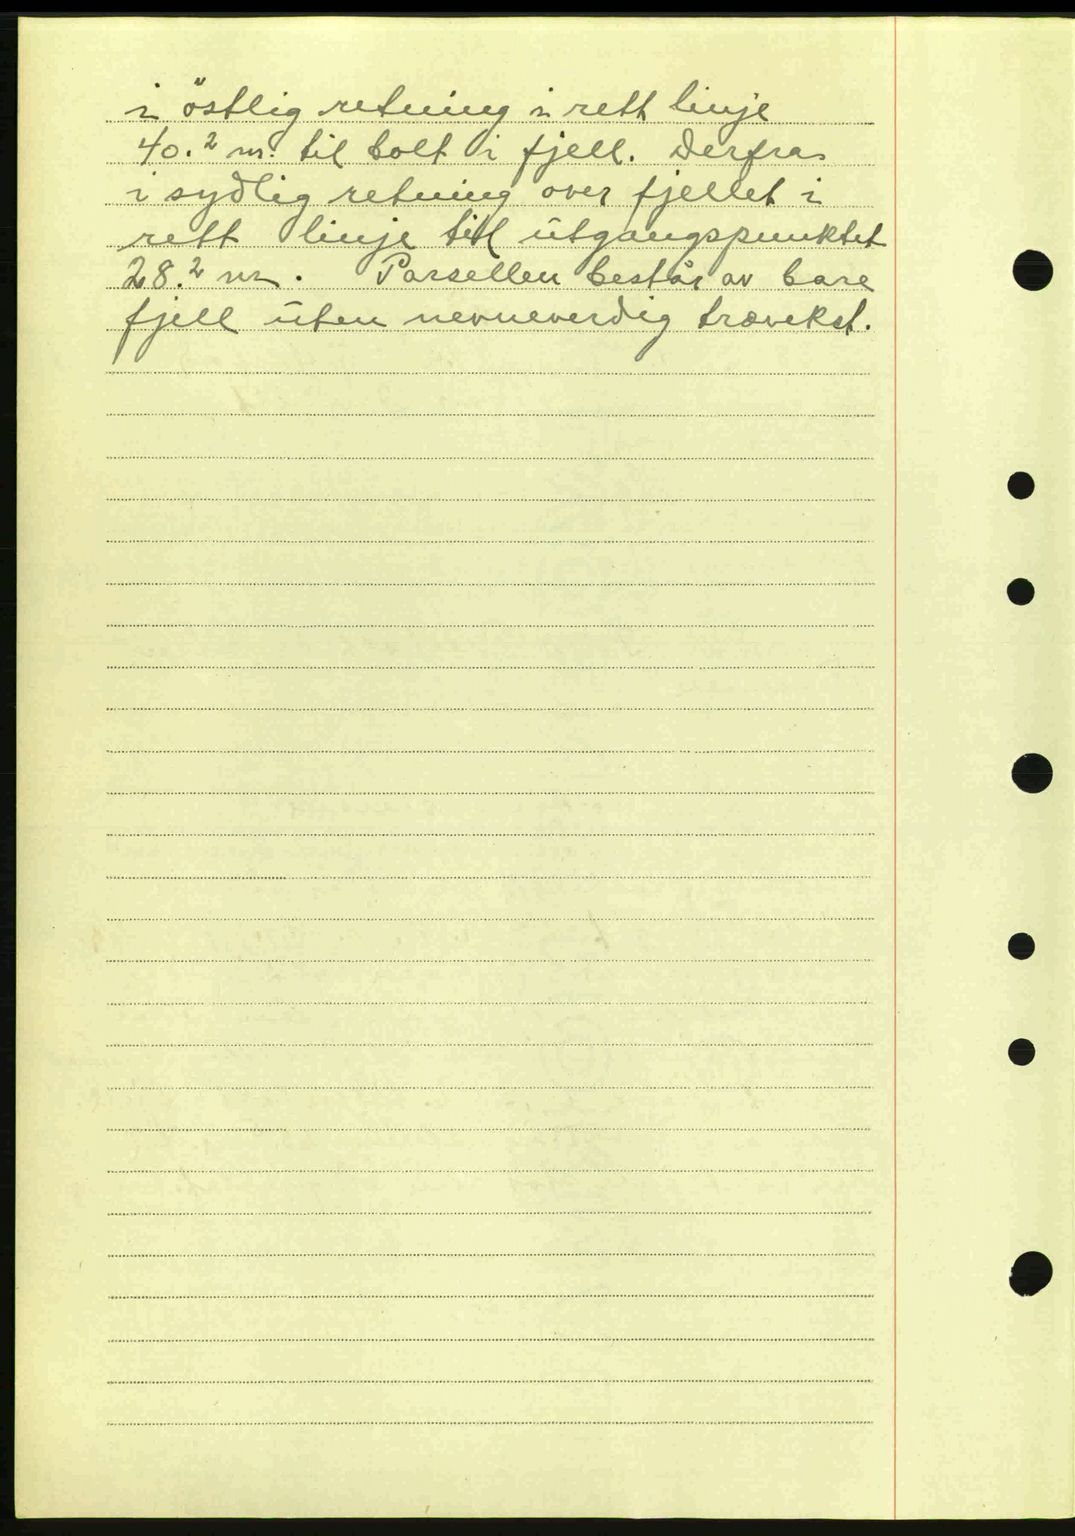 i östlig retning i rett linje
40.2 m. til bolt i fjell. Derfra
i sydlig retning over fjellet i
rett linje til utgangspunktet
28.2 m. Parsellen består av bare
fjell uten nevneverdig trævekst.